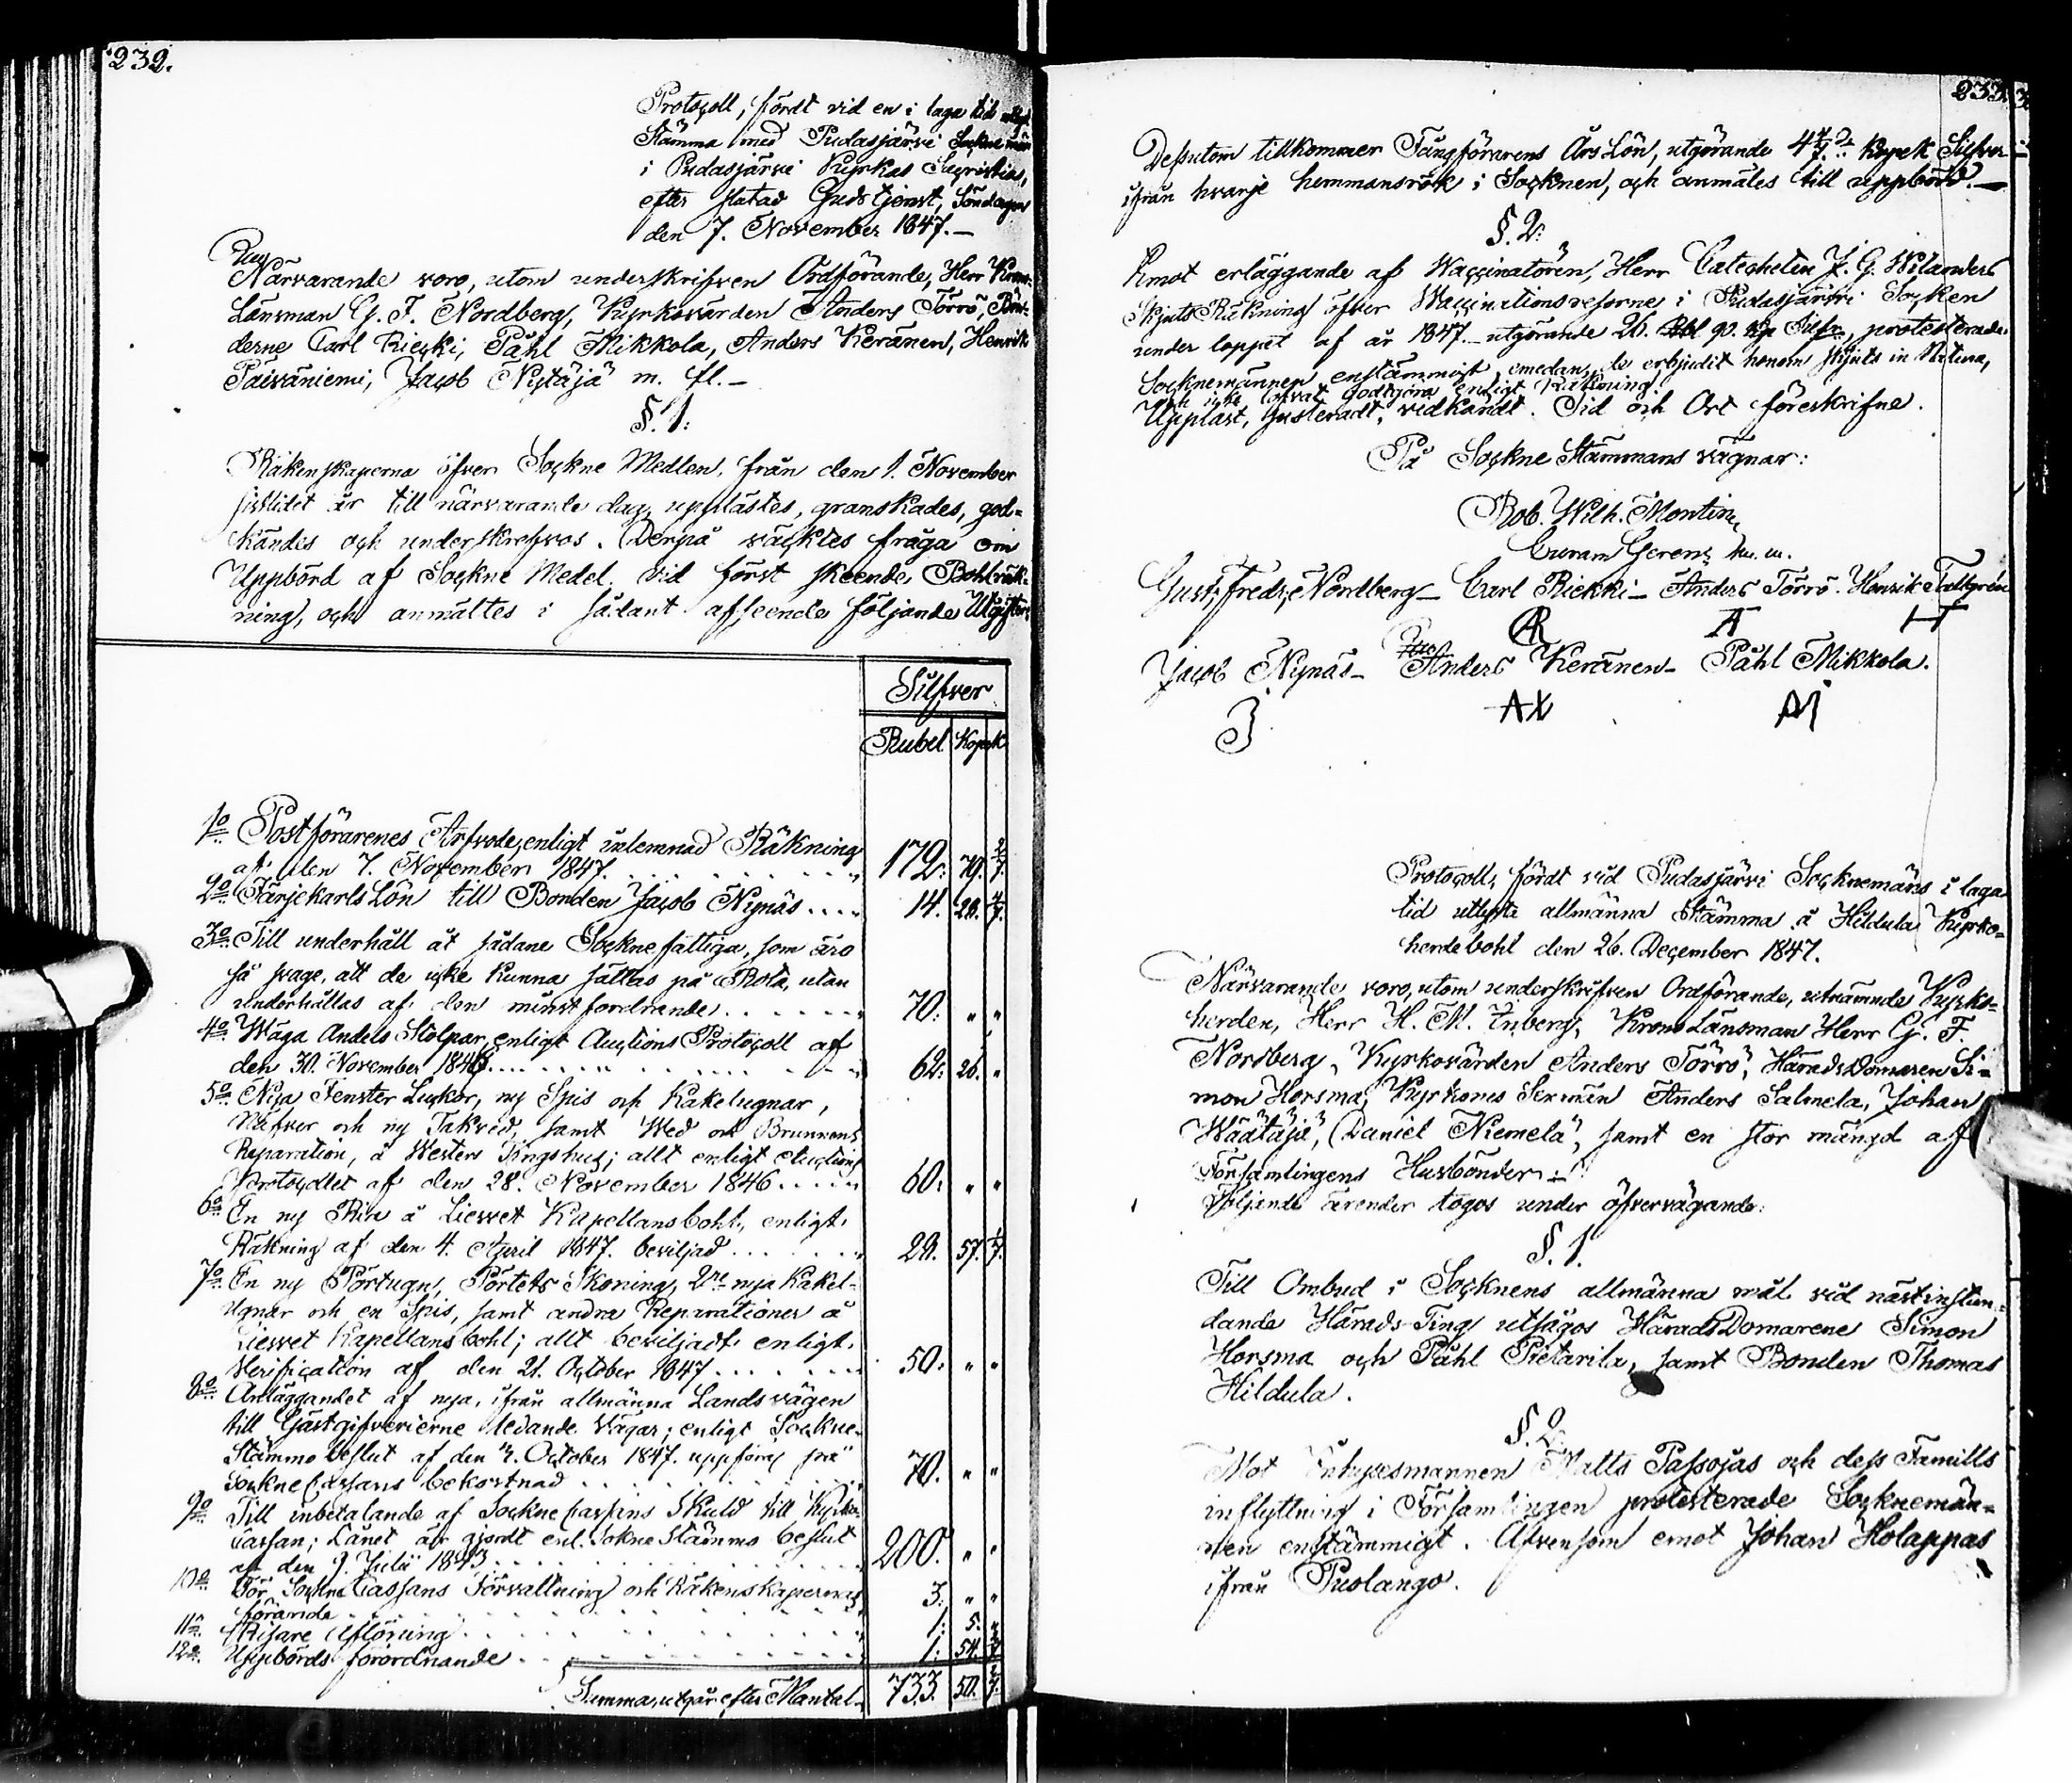 232.
Protocoll, fördt vid en i laga tid
Stämma med Pudasjärvi Socknemän
i Pudasjärvi Kyrkas Sacristia,
efter slutad Gudstjenst, Söndagen
den 7. November 1847.—
Närvarande voro, utom underskrifven Ordförande, Herr Krono-
Länsman G. F. Nordberg, Kyrkovärden Anders Törrö, Bön-
derne Carl Riecki, Påhl Mikkola, Anders Keränen, Henrik
Päiväniemi, Jacob Nytäjä m. fl.—
§. 1:
Räkenskaperna öfver Sockne Medlen, från den 1. November
sistlidit år till närvarande dag, upplästes, granskades, god-
kändes och underskrefvos. Derpå väcktes fråga om
Uppbörd af Sockne Medel vid först skeende Bohlräk-
ning, och anmältes i sådant afseende följande Utgifter:
Silfver
Rubel Kopek
1o Postförarenes Arfvode, enligt inlemnad Räkning
af den 7. November 1847. 172. 79. 2/7.
2o Färjekarls Lön till Bonden Jacob Nynäs.... 14. 28. 4/7.
3o Till underhåll åt sådane Socknefattiga, som äro
så svage, att de icke kunna sättas på Rota, utan
underhållas af den minst fordrande...... 70. " "
4o Wäga Andels Stolpar, enligt Auctions Protocoll af
den 30. November 1846.... 62. 26. "
5o Nya Fenster Luckor, ny Spis och Kakelugnar,
Näfver och ny Takved, samt Wed och Brunnens
Reparation, å Westers Tingshus; allt enligt Auctions
Protocollet af den 28. November 1846..... 60. " "
6o En ny Ria å Liesvet Kapellansbohl, enligt
Räkning af den 4. April 1847. beviljad...... 28. 57. 1/7.
7o En ny Pörtugn, Pörtets Skoning, 2ne nya Kakel-
ugnar och en Spis, samt andra Reparationer å
Liesvet Kapellansbohl; allt beviljadt enligt
Verification af den 21. October 1847...... 50. " "
8o Anläggandet af nya, ifrån allmänna Landsvägen
till Gästgifverierne ledande Vägar; enligt Sockne-
Stämmo Beslut af den 3. October 1847. uppföras på
Sockne Cassans bekostnad 70. " "
9o Till inbetalande af Sockne Cassans Skuld till Kyrko-
Cassan; Lånet är gjordt enl. Sokne Stämmo beslut
af den 9. Julii 1843. 200. " "
10o För Sockne Cassans Förvaltning och Räkenskapernas
förande 3. " "
11o Aflöning 1. 5. "
12o Uppbörds förordnande 1. 54. 2/7
Summa, utgår efter Mantal 733. 50. 2/7.
233.
Dessutom tillkommer Fångförarens Års Lön, utgörande 4 4/7. kopek Silfver
ifrån hvarje hemmansrök i Socknen, och anmäles till uppbörd.—
§. 2:
Emot erläggande af Vaccinatören, Herr Catecheten J. G. Wilanders
Skjuts Räkning öfver Vaccinationsresorne i Pudasjärvi Socken
under loppet af år 1847.— utgörande 26. Rbl 90. kp Silfr., protesterade
Socknemännen enstämmigt, emedan de erbjudit honom skjuts in Natura,
och icke lofvat godtgöra enligt Räkning.
Uppläst, justeradt, vidkändt. Tid och Ort föreskrifne.
På Sockne Stämmans vägnar:
Rob. Wilh. Montin,
Curam Gerens m. m.
Gust. Fredr. Nordberg— Carl Riekki— Anders Törrö. Henrik Tallgrén
CR AT HT
Jacob Nynäs— Anders Keränen— Påhl Mikkola.
J AK
Protocoll, fördt vid Pudasjärvi Socknemäns i laga
tid utlysta allmänna Stämma å Hildula Kyrko-
herdebohl den 26. December 1847.
Närvarande voro, utom underskrifven Ordförande, utnämnde Kyrko-
herden, Herr H. M. Enberg, Krono Länsman Herr G. F.
Nordberg, Kyrkovärden Anders Törrö, HäradsDomaren Si-
mon Horsma, Kyrkones Sexmän Anders Salmela, Johan
Wäätäjä, Daniel Niemelä, samt en stor mängd af
Församlingens Husbönder:
Följande ärender togos under öfvervägande:
§. 1.
Till Ombud i Socknens allmänna mål vid nästinstun-
dande Härads-Ting utsågos HäradsDomarene Simon
Horsma och Påhl Pietarila, samt Bonden Thomas
Hildula.
§. 2.
Mot Inhysesmannen Matts Passojas och dess Famills
inflyttning i Församlingen protesterade Socknemän-
nen enstämmigt. Äfvensom emot Johan Holappas
ifrån Puolango.